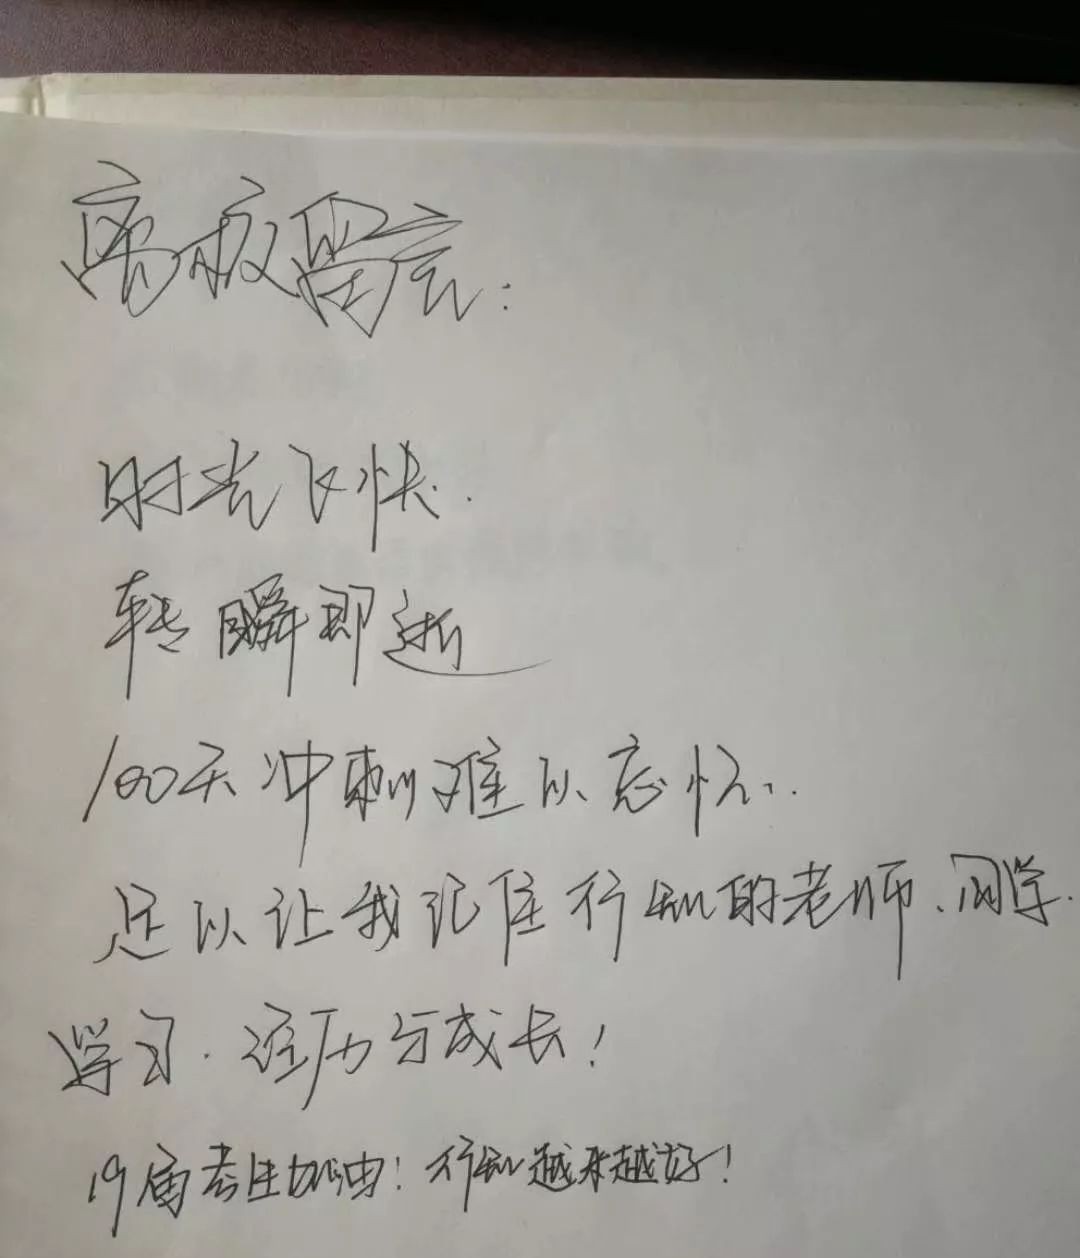 离校留言:
时光飞快.
转瞬即逝
100天冲刺难以忘怀.
足以让我记住行知的老师、同学.
学习.经历与成长!
19届考生加油!行知越来越好!